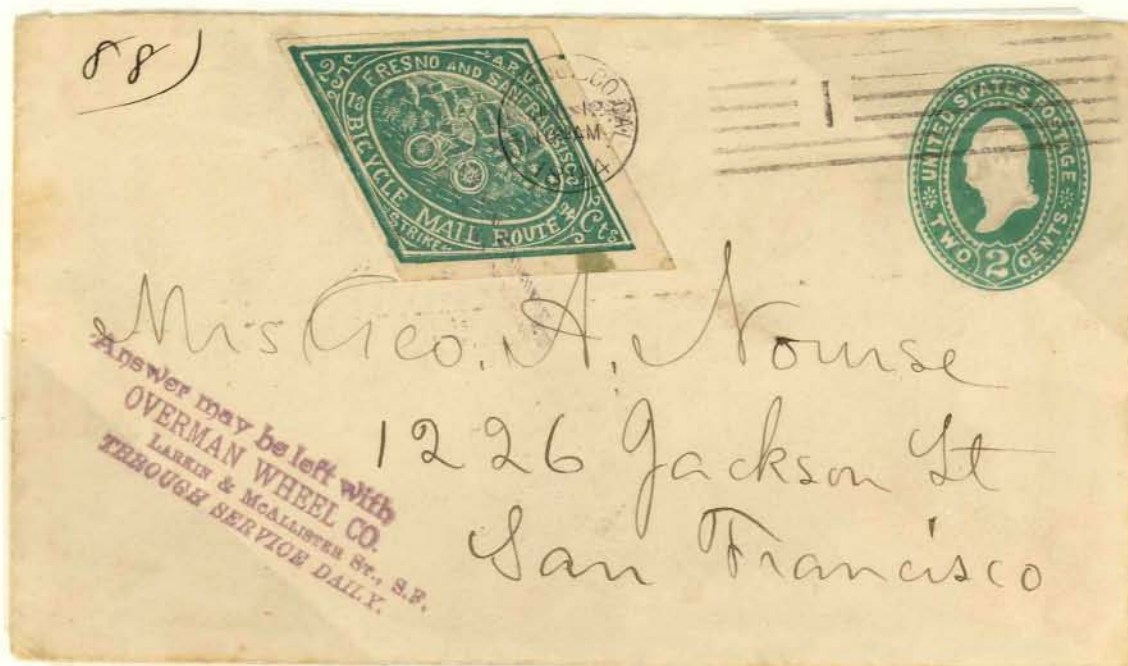 88)
25 A.R.U.
FRESNO AND SAN FRANSISCO
BICYCLE MAIL ROUTE
STRIKE 94 Cts
12
AM
1
UNITED STATES POSTAGE
TWO 2 CENTS
Mrs Geo. A. Nourse
1226 Jackson St
San Francisco
Answer may be left with
OVERMAN WHEEL CO.
LARKIN & MCALLISTER ST., S.F.
THROUGH SERVICE DAILY.